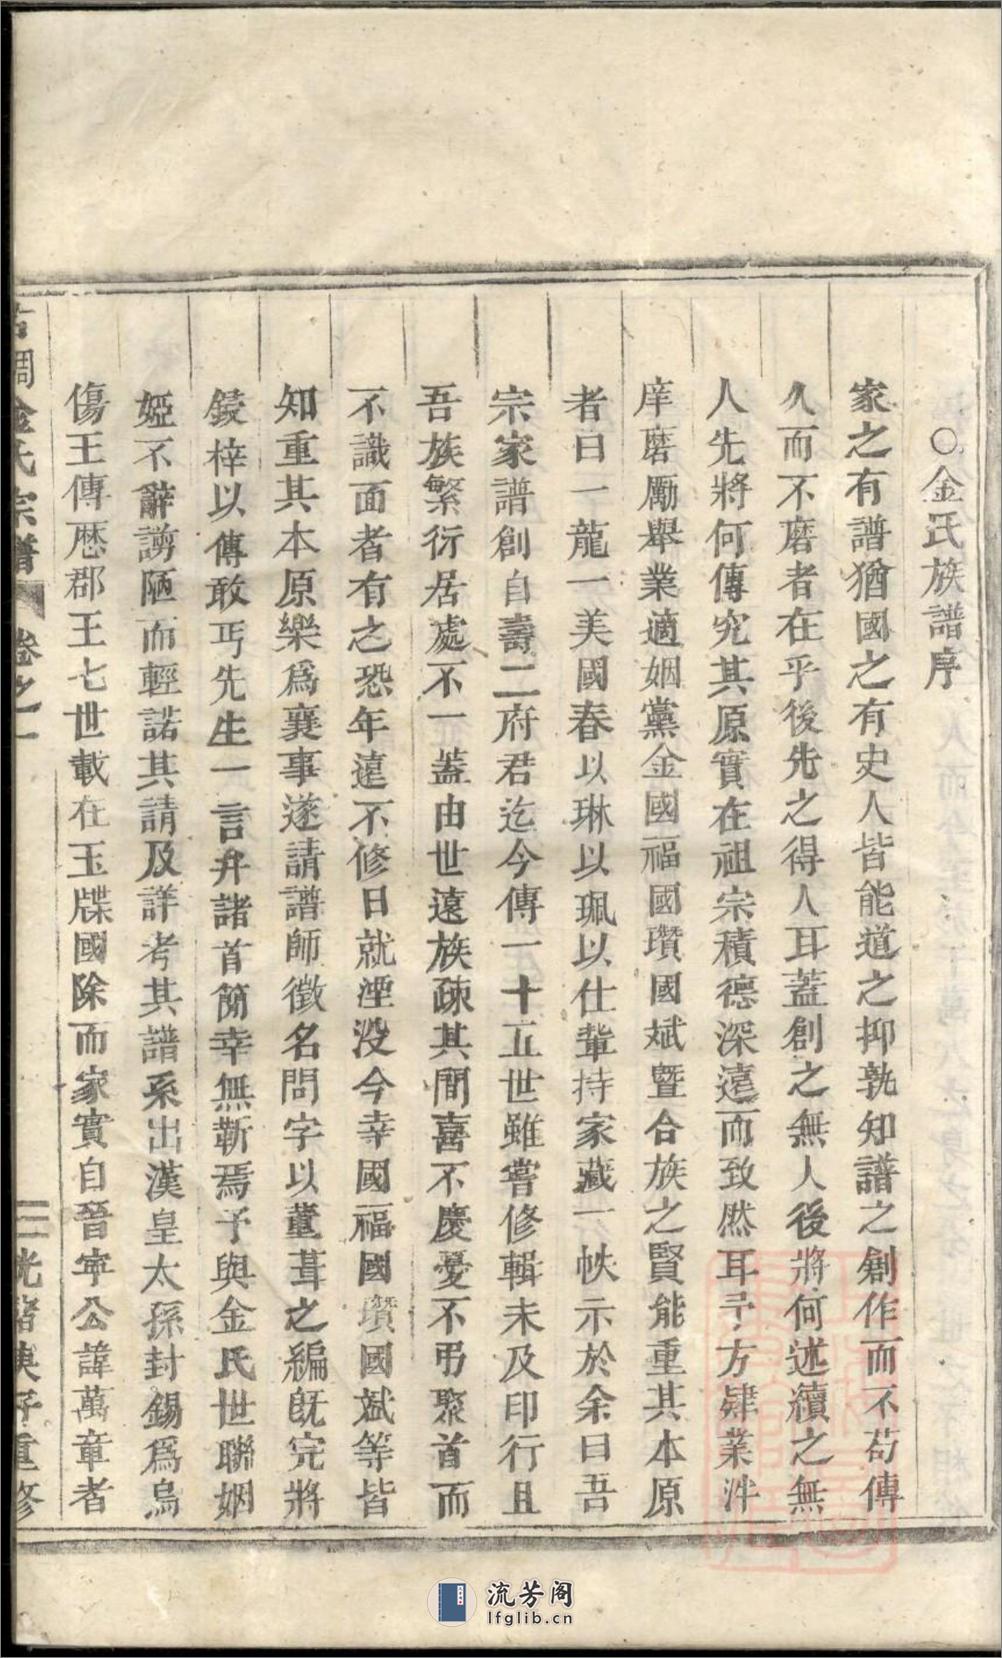 ○金氏族譜序
家之有譜猶國之有史人皆能道之抑孰知譜之創作而不苟傳
久而不磨者在乎後先之得人耳蓋創之無人後將何述續之無
人先將何傳究其原實在祖宗積德深遠而致然耳予方肄業泮
庠磨厲舉業適姻黨金國福國瓚國斌暨合族之賢能重其本原
者曰一龍一美國春以琳以珮以仕輩持家藏一帙示於余曰吾
宗家譜創自壽二府君迄今傳一十五世雖嘗修輯未及印行且
吾族繁衍居處不一蓋由世遠族疎其間喜不慶憂不弔聚首而
不識面者有之恐年遠不修日就湮没今幸國福國瓚國斌等皆
知重其本原樂爲襄事遂請譜師徵名問字以董葺之編既完將
鋟梓以傳敢丐先生一言弁諸首簡幸無靳焉予與金氏世聯姻
婭不辭謭陋而輕諾其請及詳考其譜系出漢皇太孫封錫爲烏
傷王傳歷郡王七世載在玉牒國除而家實自晉寧公諱萬章者
金氏宗譜 卷之一 三 光緒庚子重修
流芳阁
lfglib.cn